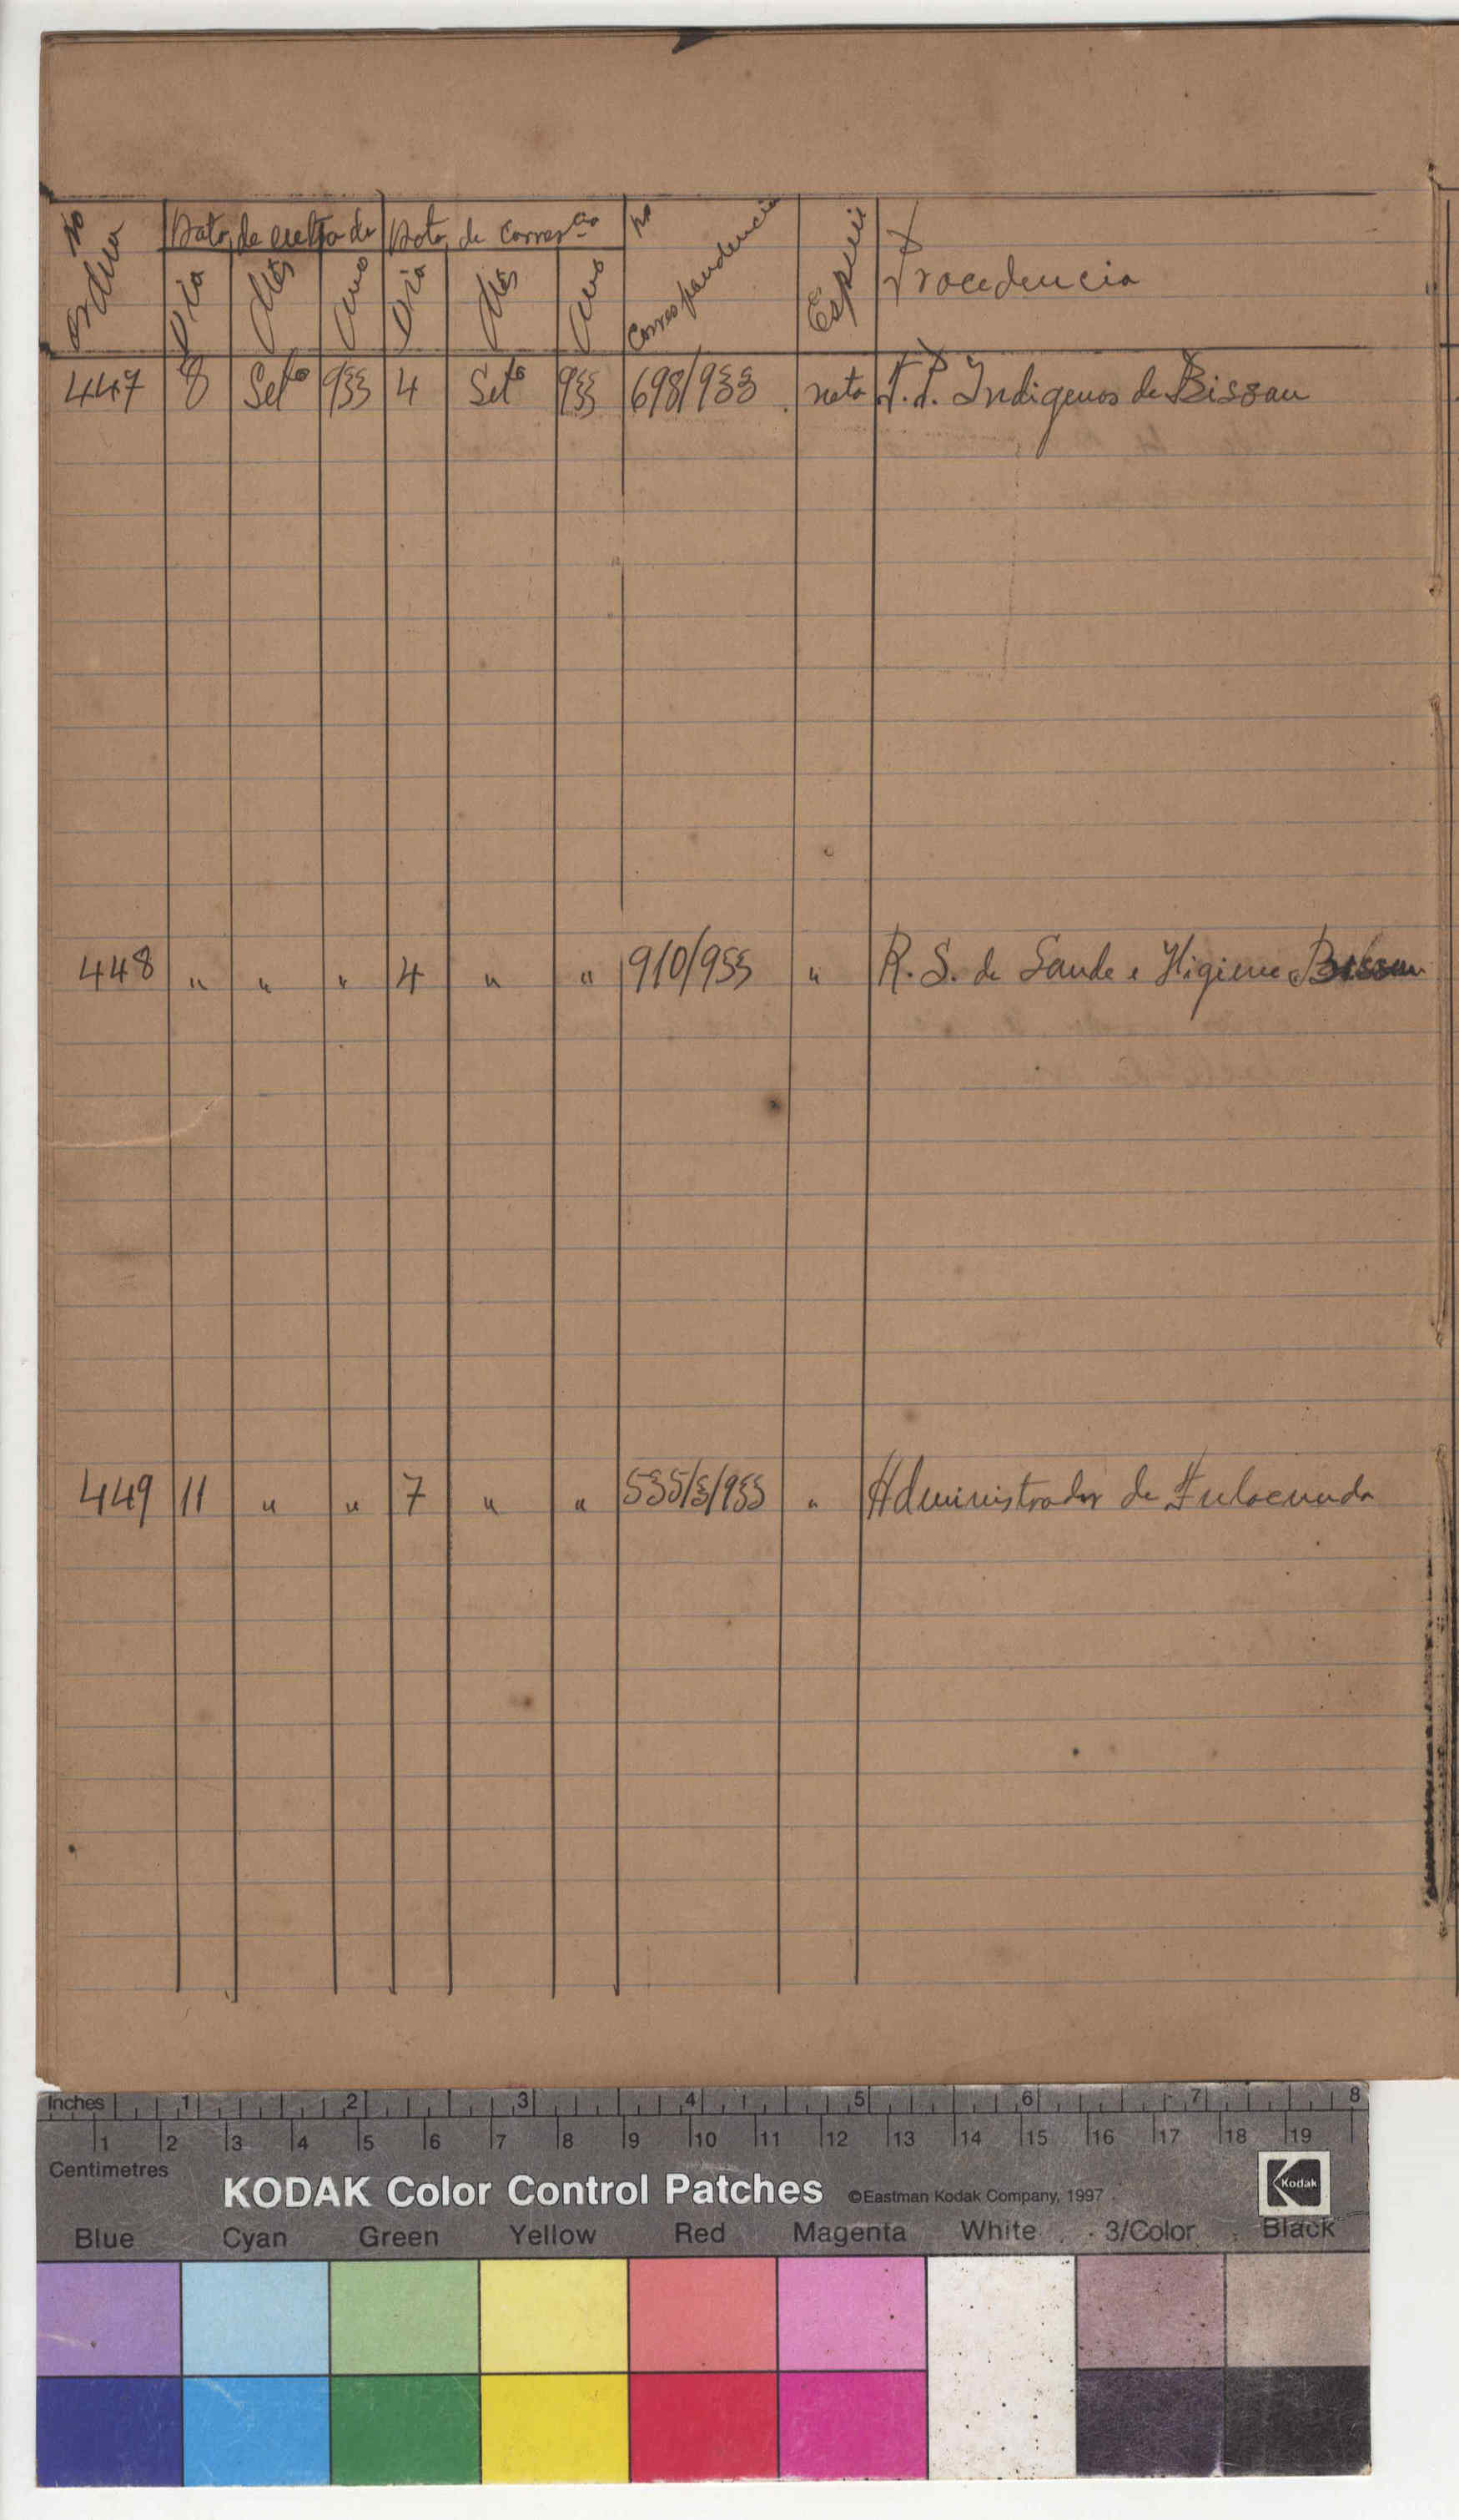 No Ordem Data de entrada Data de Corres.cia No Correspondencia Especie Procedencia
Dia Mês Ano Dia Mês Ano
447 8 Setº 933 4 Setº 933 698/933 nota T.P. Indigenos de Bissau
448 " " " 4 " " 910/933 " R. S. de Saude e Higiene Bissau
449 11 " " 7 " " 535/3/933 " Administrador de Fulacunda
Inches 1 2 3 4 5 6 7 8
1 2 3 4 5 6 7 8 9 10 11 12 13 14 15 16 17 18 19
Centimetres
KODAK Color Control Patches ©Eastman Kodak Company, 1997 Kodak
Blue Cyan Green Yellow Red Magenta White 3/Color Black